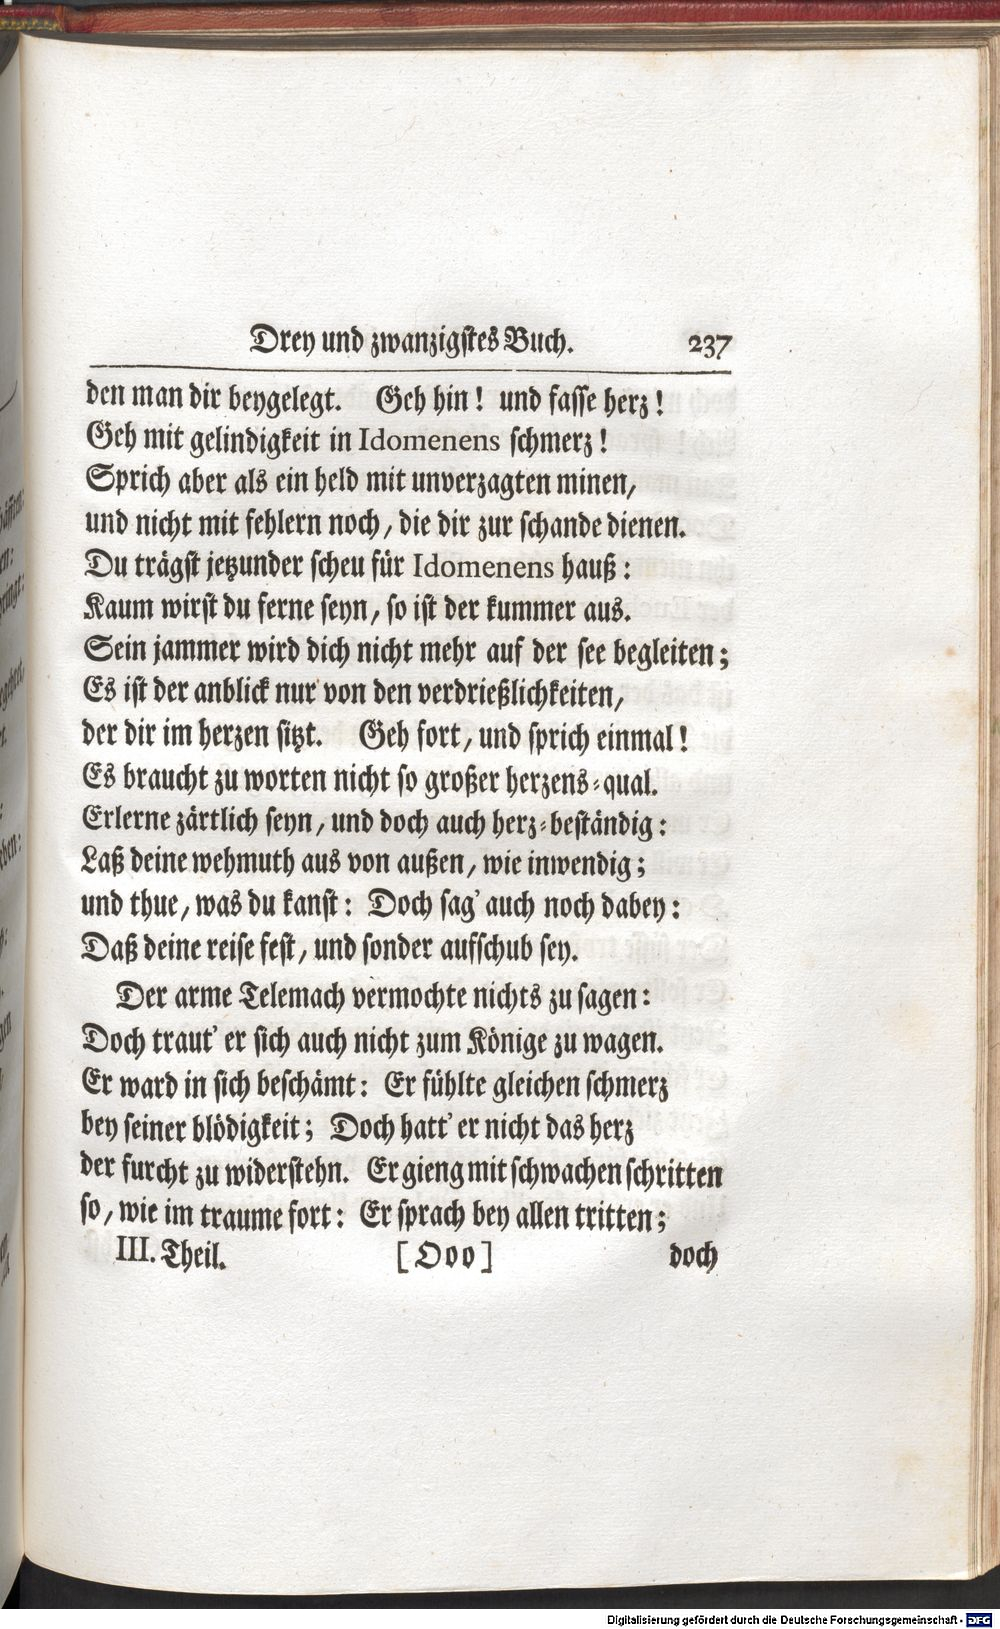 Drey und zwanzigstes Buch. 237
den man dir beygelegt. Geh hin! und fasse herz!
Geh mit gelindigkeit in Idomenens schmerz!
Sprich aber als ein held mit unverzagten minen,
und nicht mit fehlern noch, die dir zur schande dienen.
Du trägst jetzunder scheu für Idomenens hauß:
Kaum wirst du ferne seyn, so ist der kummer aus.
Sein jammer wird dich nicht mehr auf der see begleiten;
Es ist der anblick nur von den verdrießlichkeiten,
der dir im herzen sitzt. Geh fort, und sprich einmal!
Es braucht zu worten nicht so großer herzens-qual.
Erlerne zärtlich seyn, und doch auch herz-beständig:
Laß deine wehmuth aus von außen, wie inwendig;
und thue, was du kanst: Doch sag' auch noch dabey:
Daß deine reise fest, und sonder aufschub sey.
Der arme Telemach vermochte nichts zu sagen:
Doch traut' er sich auch nicht zum Könige zu wagen.
Er ward in sich beschämt: Er fühlte gleichen schmerz
bey seiner blödigkeit; Doch hatt' er nicht das herz
der furcht zu widerstehn. Er gieng mit schwachen schritten
so, wie im traume fort: Er sprach bey allen tritten;
III. Theil. [Ooo] doch
Digitalisierung gefördert durch die Deutsche Forschungsgemeinschaft - DFG